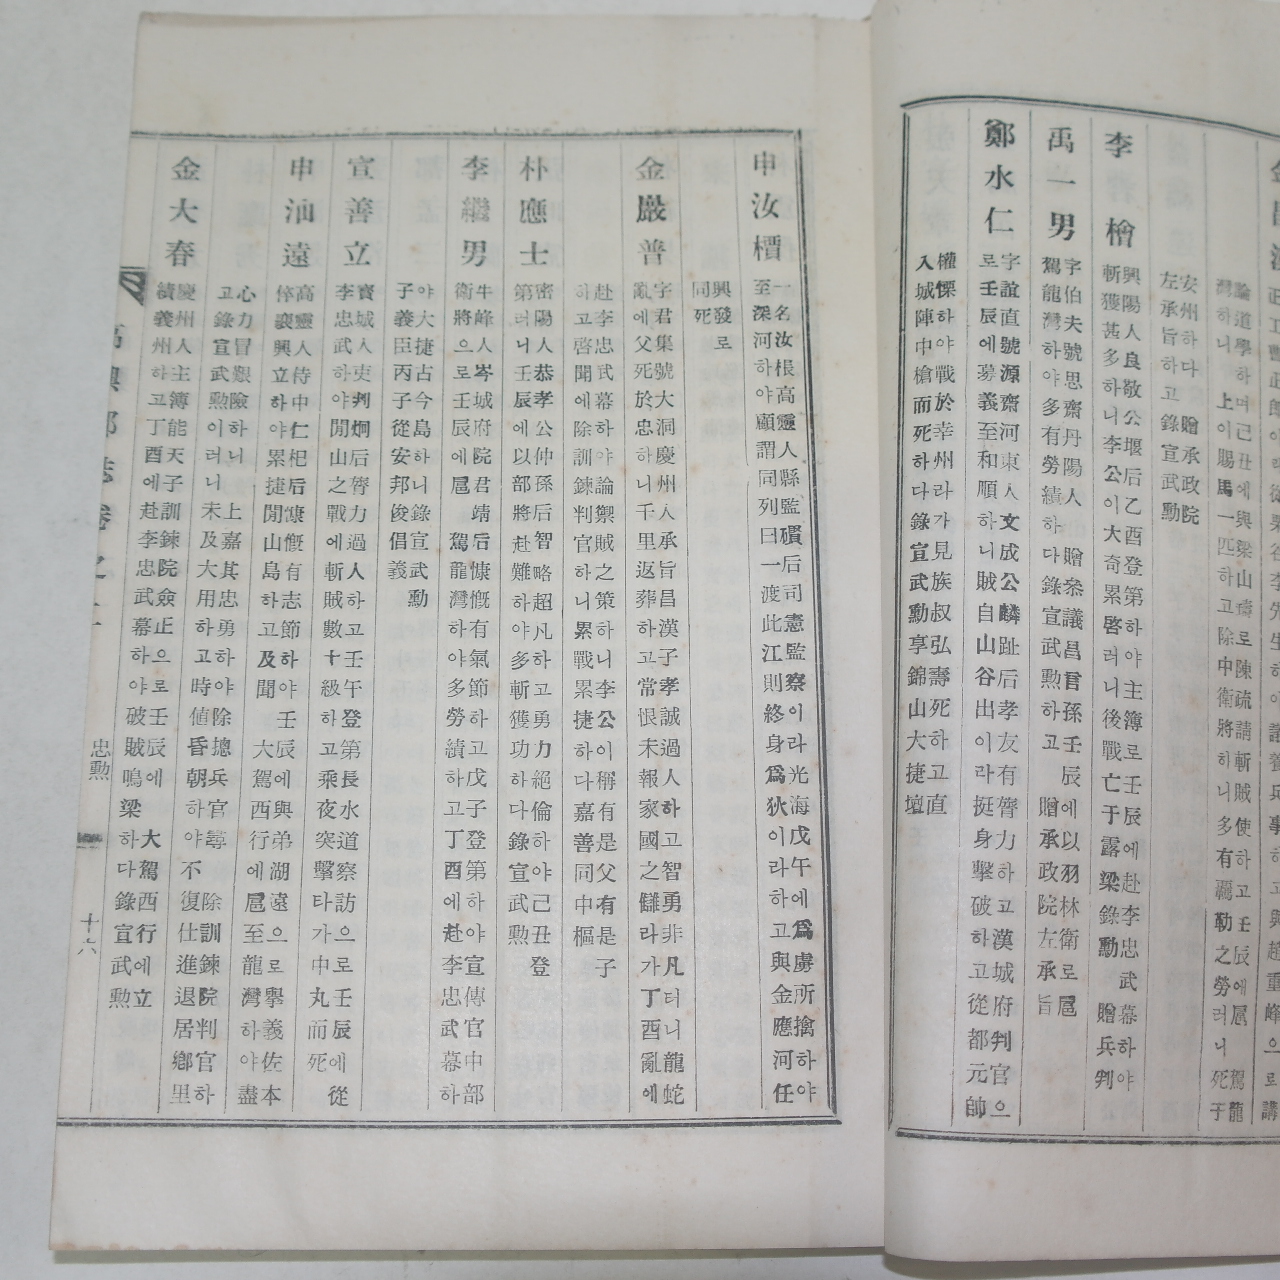 論道學하며己丑에與梁山璹로陳疏請斬賊使하고壬辰에扈 駕龍
灣하니 上이賜馬一匹하고除中衛將하니多有羈勒之勞러니死于
安州하다 贈承政院
左承旨하고錄宣武勳
李檜
興陽人良敬公堰后乙酉登第하야主簿로壬辰에赴李忠武幕하야
斬獲甚多하니李公이大奇累啓러니後戰亡于露梁錄勳 贈兵判
禹一男
字伯夫號思齋丹陽人 贈叅議昌官孫壬辰에以羽林衛로扈
駕龍灣하야多有勞績하다錄宣武勳하고 贈承政院左承旨
鄭水仁
字誼直號源齋河東人文成公麟趾后孝友有膂力하고漢城府判官으
로壬辰에募義至和順하니賊自山谷出이라挺身擊破하고從都元帥
權慄하야戰於幸州라가見族叔弘壽死하고直
入城陣中槍而死하다錄宣武勳享錦山大捷壇
申汝櫝
一名汝根高靈人縣監礥后司憲監察이라光海戊午에爲虜所擒하야
至深河하야顧謂同列曰一渡此江則終身爲狄이라하고與金應河任
興發로
同死
金嚴普
字君集號大洞慶州人承旨昌漢子孝誠過人하고智勇非凡터니龍蛇
亂에父死於忠하니千里返葬하고常恨未報家國之讎라가丁酉亂에
赴李忠武幕하야論禦賊之策하니李公이稱有是父有是子
하고啓聞에除訓鍊判官하니累戰累捷하다嘉善同中樞
朴應士
密陽人恭孝公仲孫后智略超凡하고勇力絕倫하야己丑登
第러니壬辰에以部將赴難하야多斬獲功하다錄宣武勳
李繼男
牛峰人岑城府院君靖后慷慨有氣節하고戊子登第하야宣傳官中部
衛將으로壬辰에扈 駕龍灣하야多勞績하고丁酉에赴李忠武幕하
야大捷古今島하니錄宣武勳
子義臣丙子從安邦俊倡義
宣善立
寳城人吏判炯后膂力過人하고壬午登第長水道察訪으로壬辰에從
李忠武하야閒山之戰에斬賊數十級하고乘夜突擊타가中丸而死
申汕遠
高靈人侍中仁杞后慷慨有志節하야壬辰에與弟湖遠으로擧義佐本
倅裵興立하야累捷閒山島하고及聞 大駕西行에扈至龍灣하야盡
心力冒艱險하니 上嘉其忠勇하야除摠兵官尋 除訓鍊院判官하
고錄宣武勳이러니未及大用하고時値昏朝하야不復仕進退居鄕里
金大春
慶州人主簿能天子訓鍊院僉正으로壬辰에 大駕西行에立
績義州하고丁酉에赴李忠武幕하야破賊鳴梁하다錄宣武勳
高興郡誌卷之
忠勳
十六